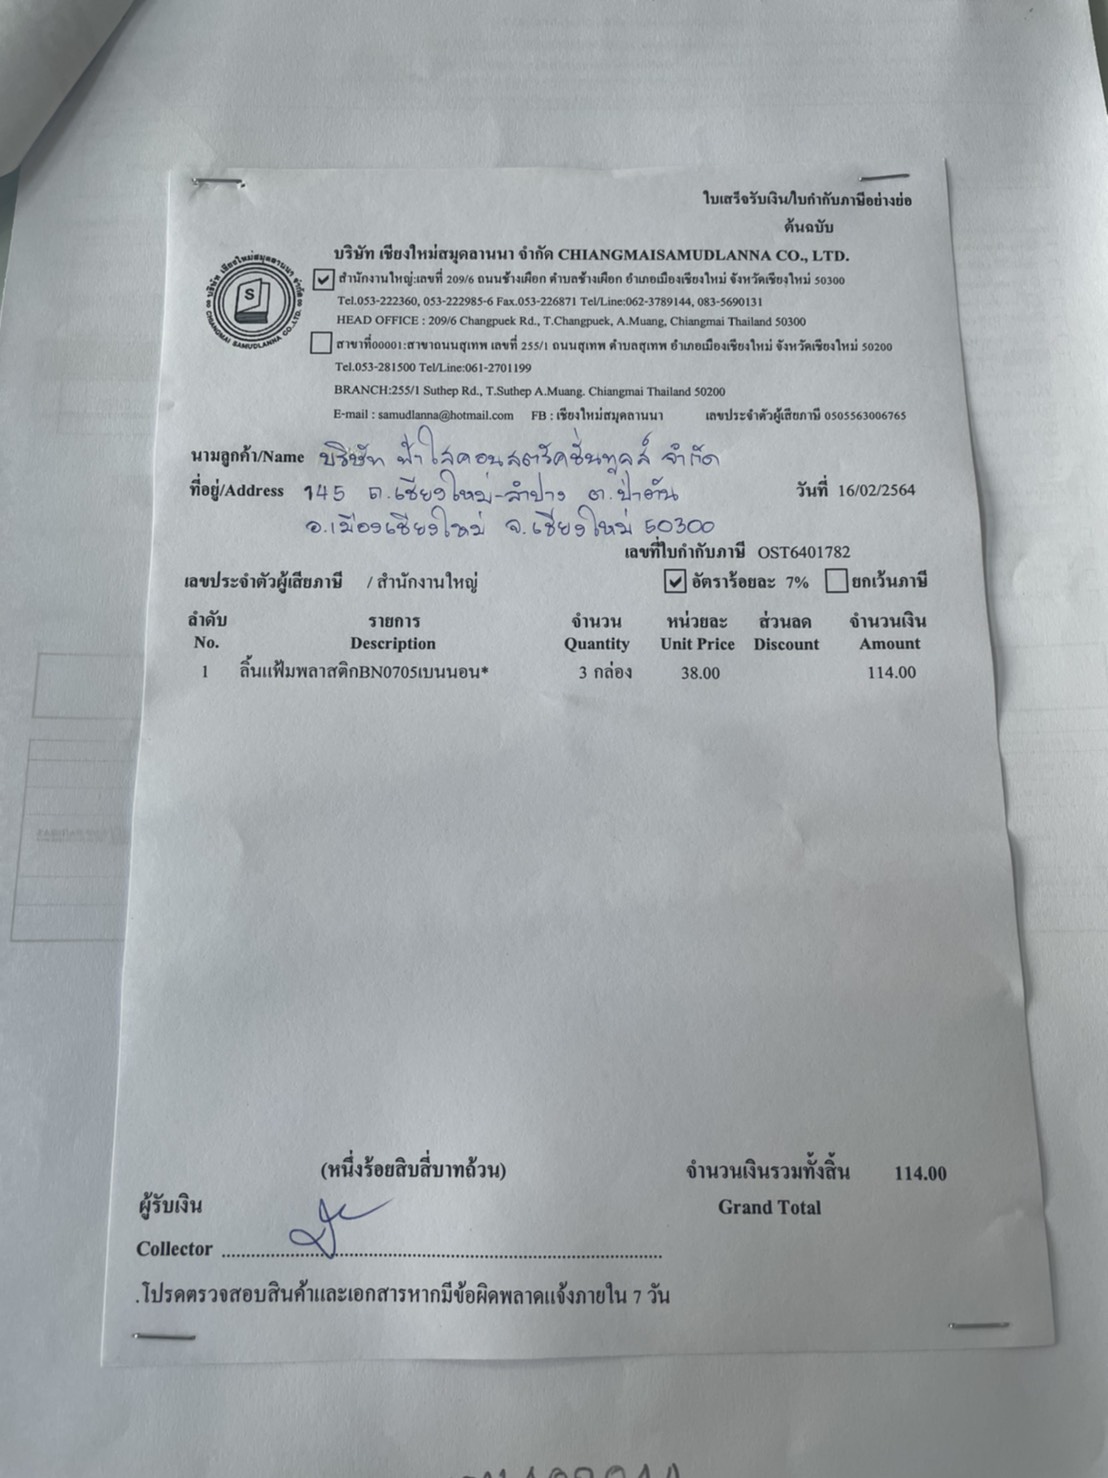 ใบเสร็จรับเงิน/ใบกำกับภาษีอย่างย่อ
ต้นฉบับ
บริษัท เชียงใหม่สมุดลานนา จำกัด CHIANGMAISAMUDLANNA CO., LTD.
บริษัท เชียงใหม่สมุดลานนา จำกัด
S
CHIANGMAI SAMUDLANNA CO.,LTD.
สำนักงานใหญ่:เลขที่ 209/6 ถนนช้างเผือก ตำบลช้างเผือก อำเภอเมืองเชียงใหม่ จังหวัดเชียงใหม่ 50300
Tel.053-222360, 053-222985-6 Fax.053-226871 Tel/Line:062-3789144, 083-5690131
HEAD OFFICE : 209/6 Changpuek Rd., T.Changpuek, A.Muang, Chiangmai Thailand 50300
สาขาที่00001:สาขาถนนสุเทพ เลขที่ 255/1 ถนนสุเทพ ตำบลสุเทพ อำเภอเมืองเชียงใหม่ จังหวัดเชียงใหม่ 50200
Tel.053-281500 Tel/Line:061-2701199
BRANCH:255/1 Suthep Rd., T.Suthep A.Muang. Chiangmai Thailand 50200
E-mail : samudlanna@hotmail.com FB : เชียงใหม่สมุดลานนา เลขประจำตัวผู้เสียภาษี 0505563006765
นามลูกค้า/Name บริษัท ฟ้าใสคอนสตรัคชั่นทูลส์ จำกัด
ที่อยู่/Address 145 ถ.เชียงใหม่-ลำปาง ต.ป่าตัน วันที่ 16/02/2564
อ.เมืองเชียงใหม่ จ.เชียงใหม่ 50300
เลขที่ใบกำกับภาษี OST6401782
เลขประจำตัวผู้เสียภาษี / สำนักงานใหญ่ อัตราร้อยละ 7% ยกเว้นภาษี
ลำดับ รายการ จำนวน หน่วยละ ส่วนลด จำนวนเงิน
No. Description Quantity Unit Price Discount Amount
1 ลิ้นแฟ้มพลาสติกBN0705เบนนอน* 3 กล่อง 38.00 114.00
(หนึ่งร้อยสิบสี่บาทถ้วน) จำนวนเงินรวมทั้งสิ้น 114.00
ผู้รับเงิน Grand Total
Collector
.โปรดตรวจสอบสินค้าและเอกสารหากมีข้อผิดพลาดแจ้งภายใน 7 วัน